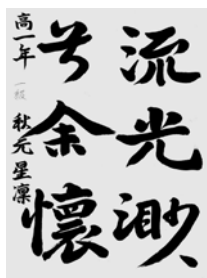 流光渺
兮余懷
高一年 一級 秋元星凜